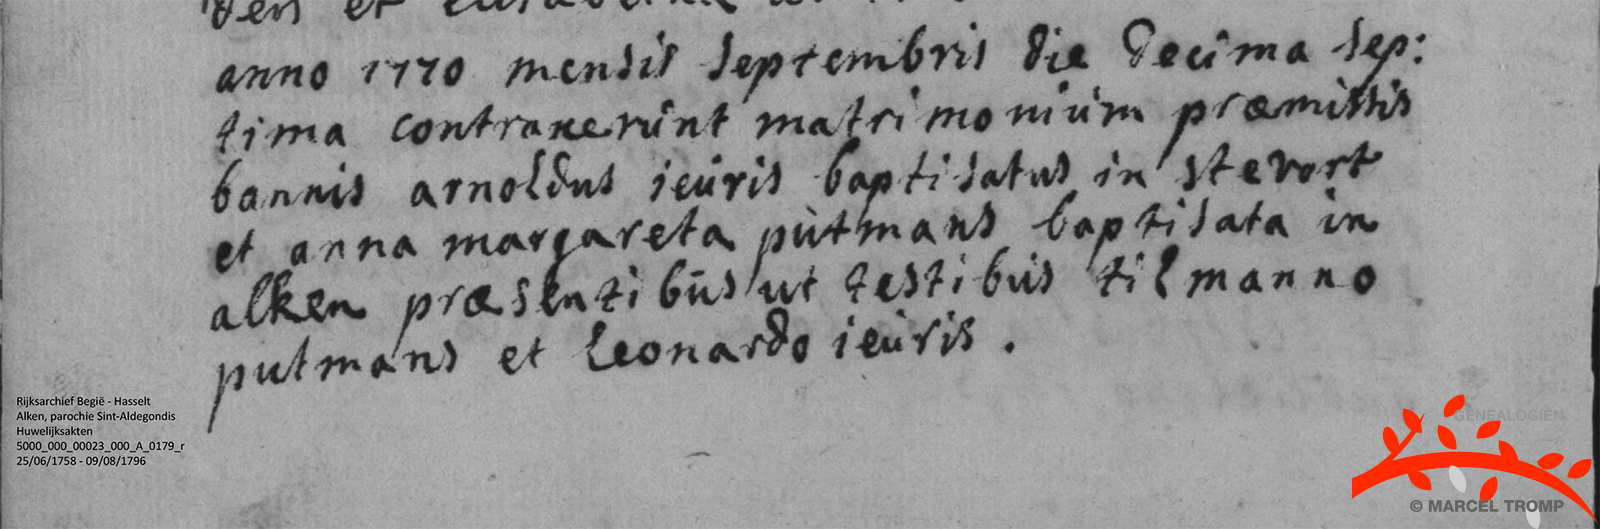 den et
anno 1770 mensis septembris die decima sep:
tima contraxerunt matrimonium præmissis
bannis arnoldus ieuris baptisatus in stevort
et anna margareta putmans baptisata in
alken præsentibus ut testibus tilmanno
putmans et Leonardo ieuris.
Rijksarchief Begië - Hasselt
Alken, parochie Sint-Aldegondis
Huwelijksakten
5000_000_00023_000_A_0179_r
25/06/1758 - 09/08/1796
GENEALOGIEN
© MARCEL TROMP